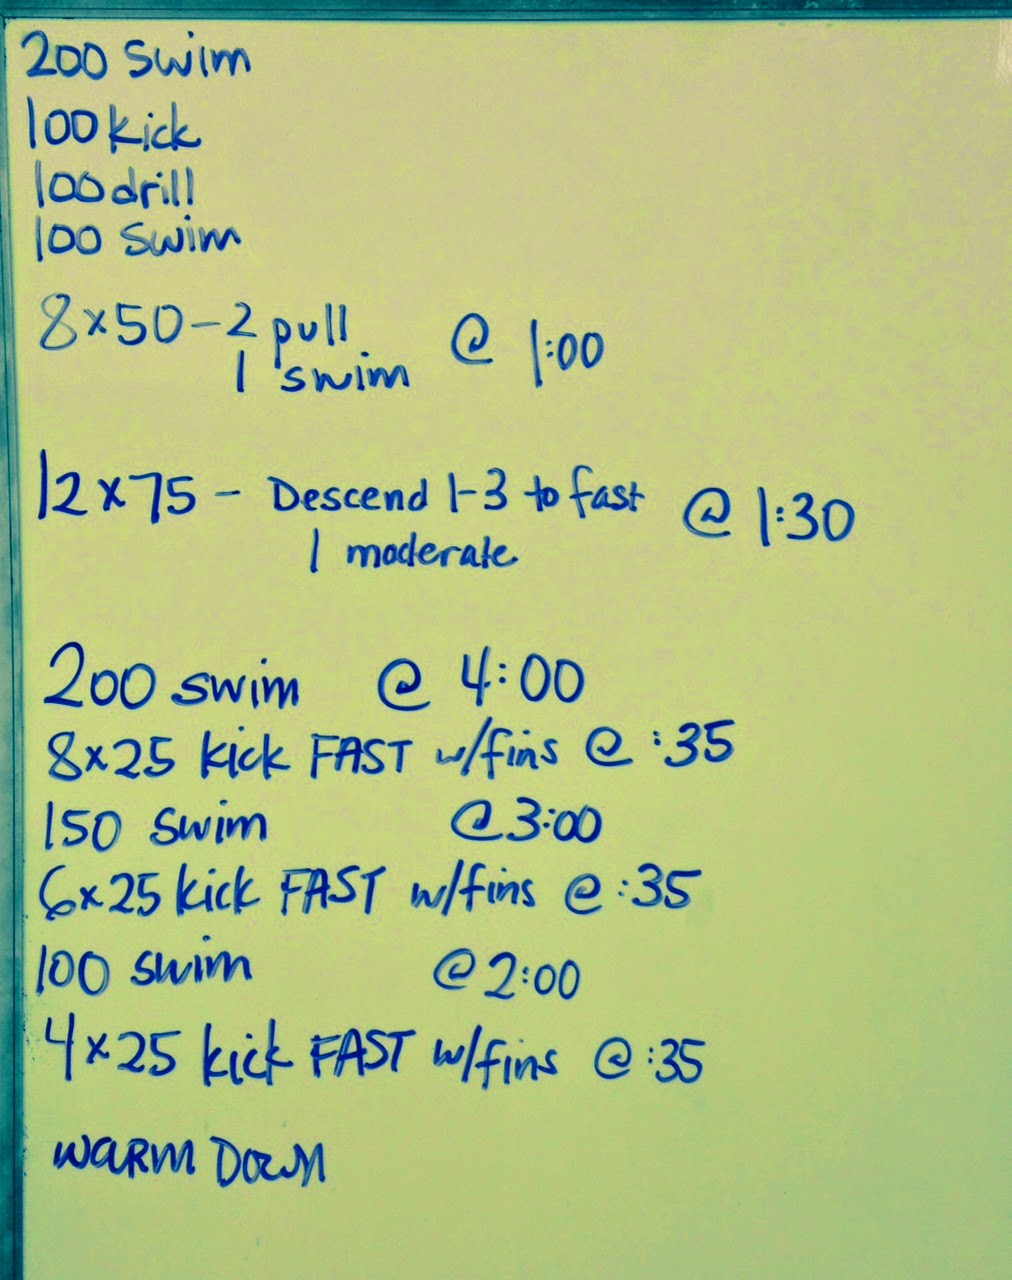 200 swim
100 kick
100 drill
100 swim
8x50 - 2 pull @ 1:00
1 swim
12x75 - Descend 1-3 to fast @ 1:30
1 moderate
200 swim @ 4:00
8x25 kick FAST w/fins @ :35
150 swim @ 3:00
6x25 kick FAST w/fins @ :35
100 swim @ 2:00
4x25 kick FAST w/fins @ :35
WARM DOWN